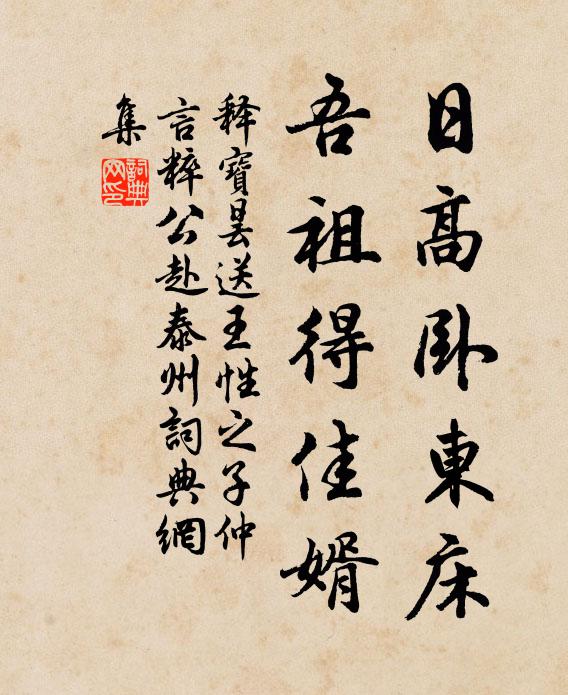 日高卧東床
吾祖得佳婿
释寶昙送王性之子仲
言粹公赴泰州詞典網
集
詞典网印